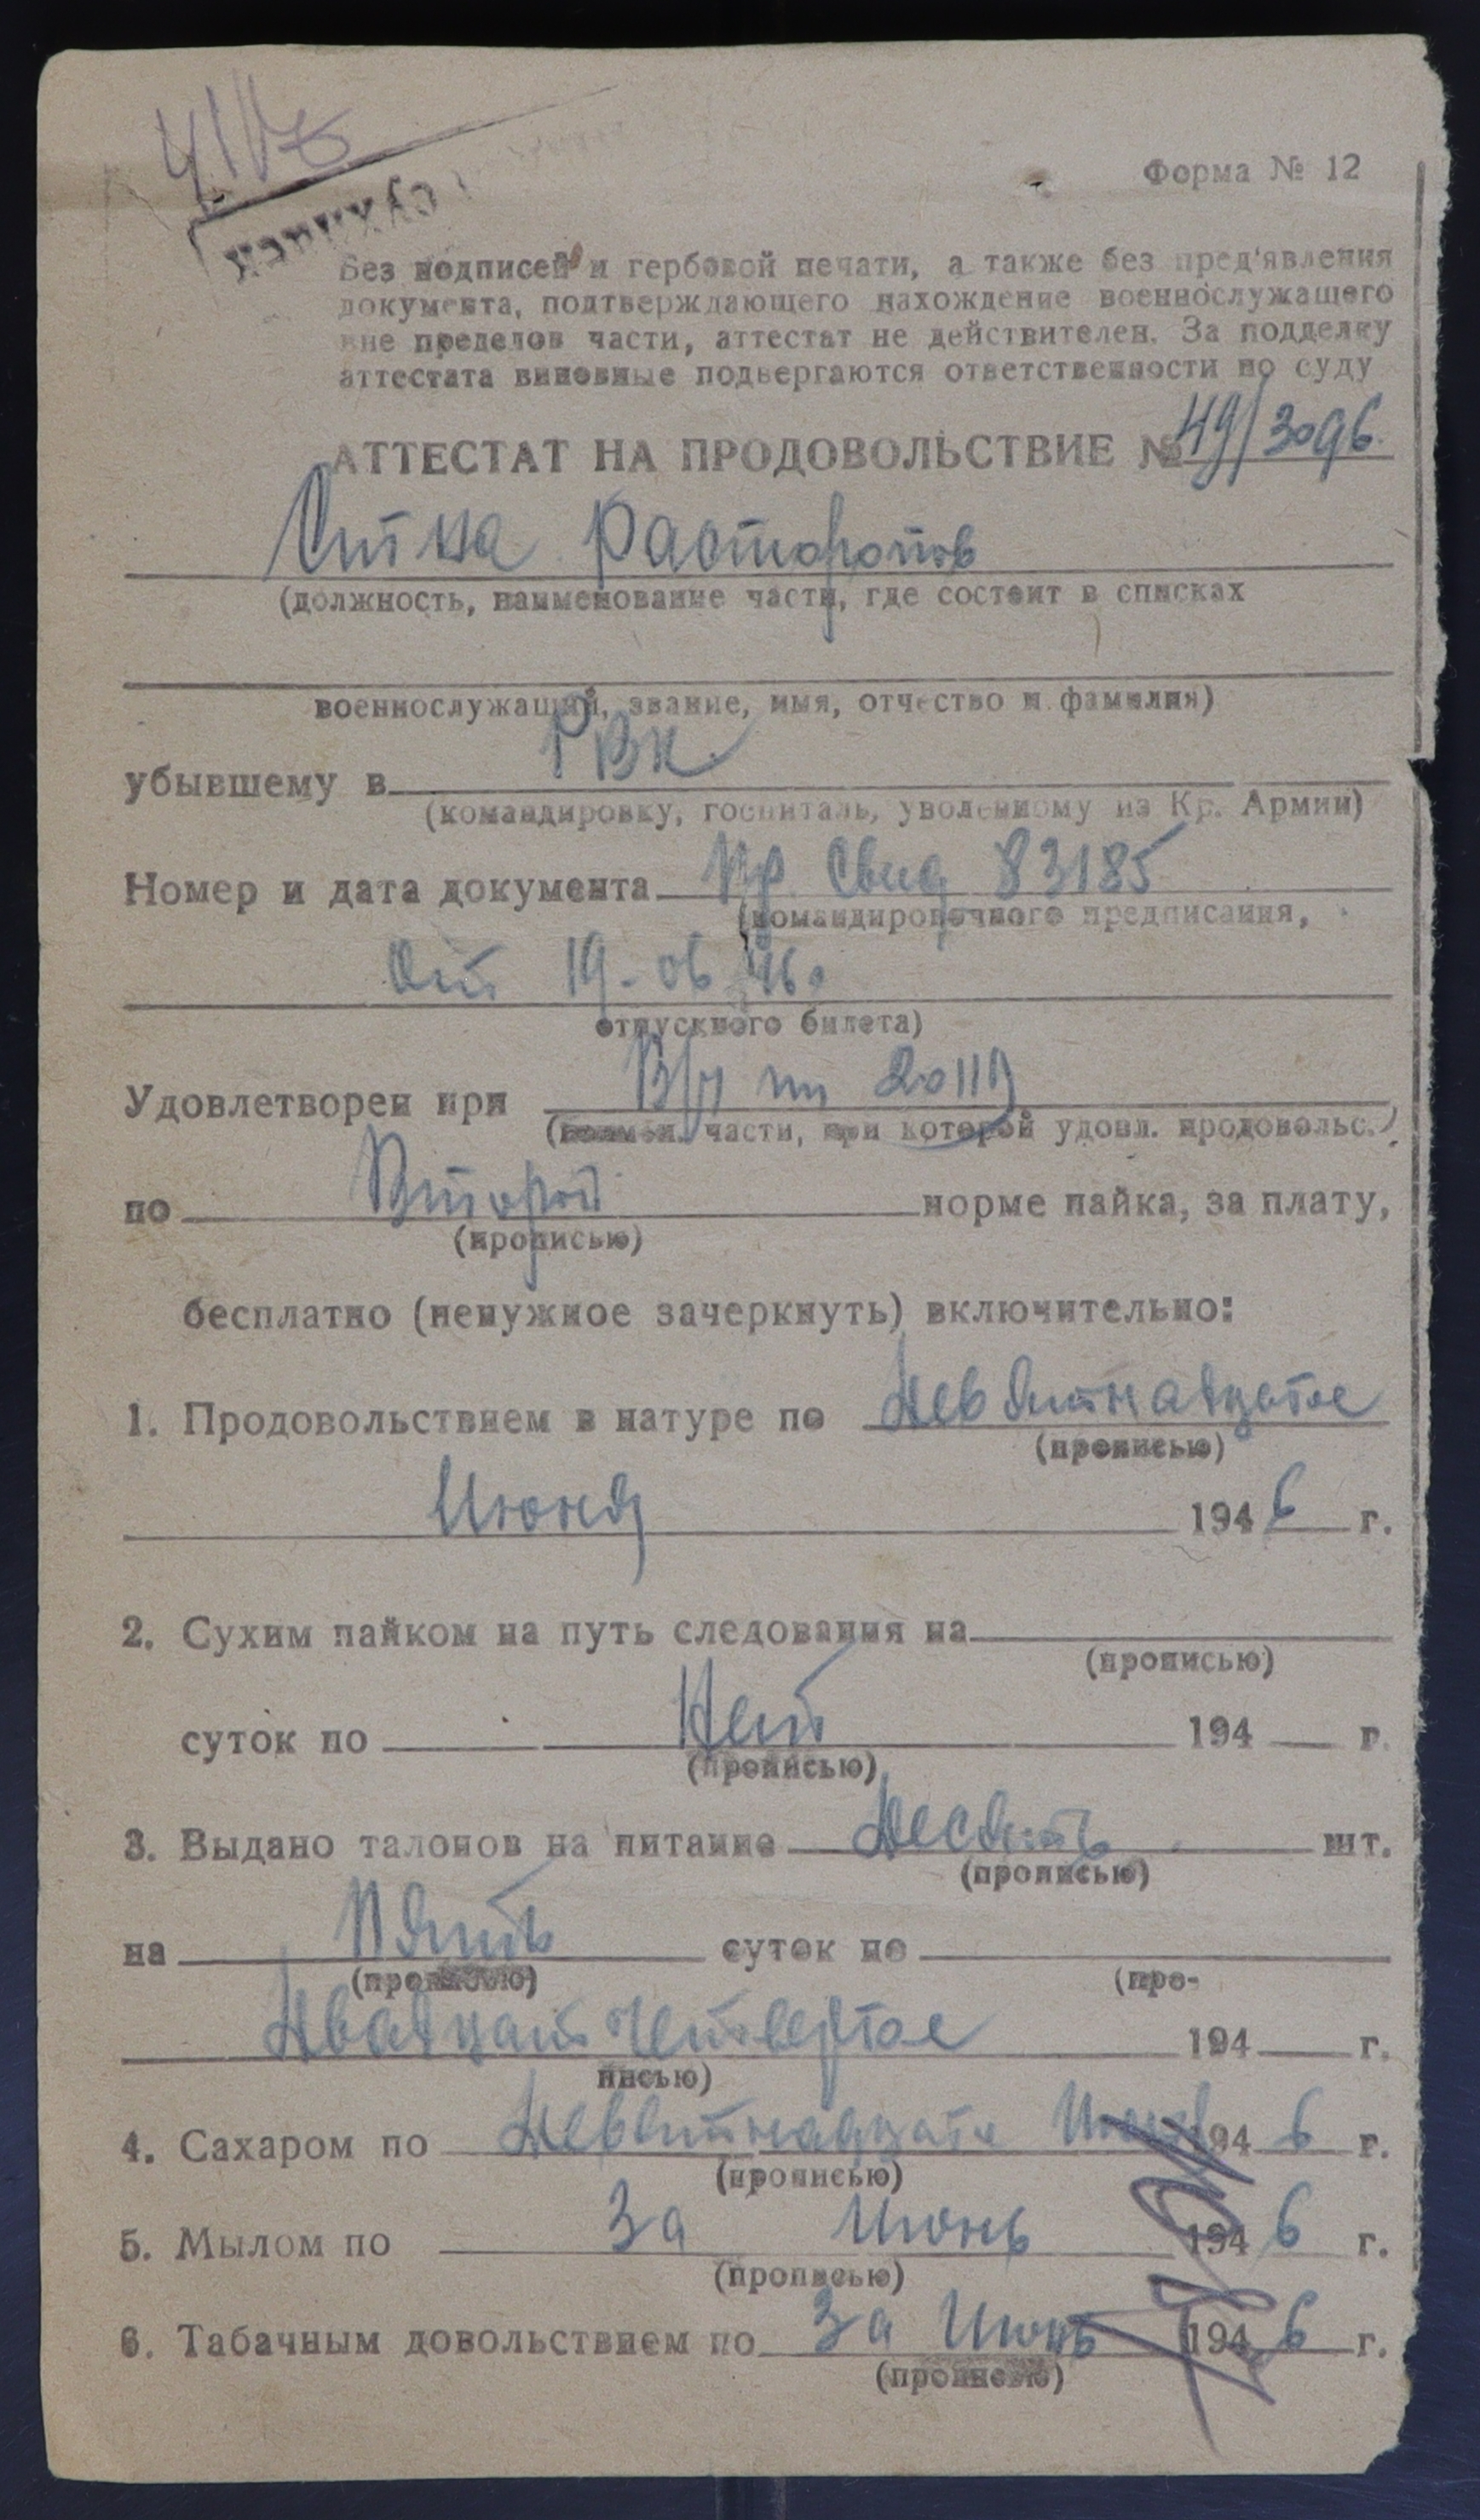 Форма № 12
Без подписей и гербовой печати, а также без пред'явления
документа, подтверждающего нахождение военнослужащего
вне пределов части, аттестат не действителен. За подделку
аттестата виновные подвергаются ответственности по суду
АТТЕСТАТ НА ПРОДОВОЛЬСТВИЕ № 49/3096
Расторопов
(должность, наименование части, где состоит в списках
военнослужащий, звание, имя, отчество и фамилия)
РВК
убывшему в
(командировку, госпиталь, уволенному из Кр. Армии)
Номер и дата документа Пр Свид 83185
(командировочного предписания,
От 19-06 46г
отпускного билета)
Удовлетворен при В/ч пп 20119
(наимен. части, при которой удовл. продовольс.)
по Второй норме пайка, за плату,
(прописью)
бесплатно (ненужное зачеркнуть) включительно:
1. Продовольствием в натуре по Девятнадцатое
(прописью)
Июня 1946 г.
2. Сухим пайком на путь следования на
(прописью)
суток по Нет 194 г.
(прописью)
3. Выдано талонов на питание Десять шт.
(прописью)
на Пять суток по
(прописью) (про-
Двадцать Четвертое 194 г.
писью)
4. Сахаром по Девятнадцате Июня 1946 г.
(прописью)
5. Мылом по За Июнь 1946 г.
(прописью)
6. Табачным довольствием по За Июнь 1946 г.
(прописью)